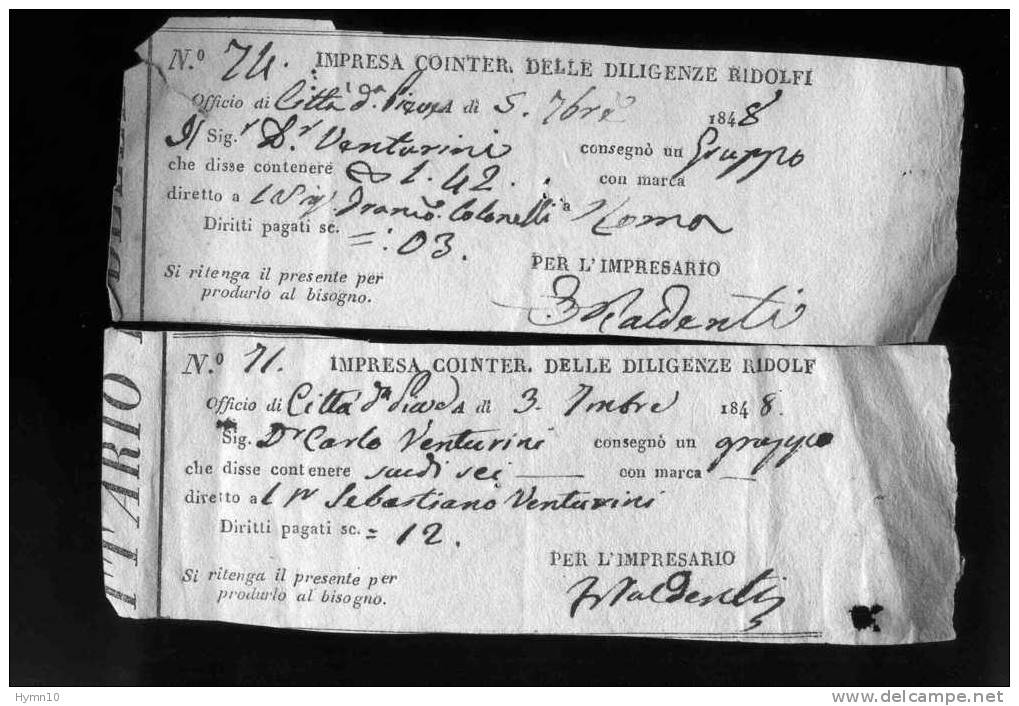 N.º 74. IMPRESA COINTER. DELLE DILIGENZE RIDOLFI
Officio di Città d.a Pieve A dì 5. 7bre 1848
Il Sig.r D.r Venturini consegnò un Gruppo
che disse contenere 1.42. con marca
diretto a l Sig. Franc.o Colonelli a Roma
Diritti pagati sc. =:03.
PER L'IMPRESARIO
Si ritenga il presente per
produrlo al bisogno.
N.º 71. IMPRESA COINTER. DELLE DILIGENZE RIDOLF
Officio di Città d.a Pieve A dì 3. 7mbre 1848.
Sig. Dr Carlo Venturini consegnò un gruppo
che disse contenere scudi sei con marca
diretto a l Sebastiano Venturini
Diritti pagati sc. = 12.
PER L'IMPRESARIO
Si ritenga il presente per
produrlo al bisogno.
TTARIO
Hymn10
www.delcampe.net